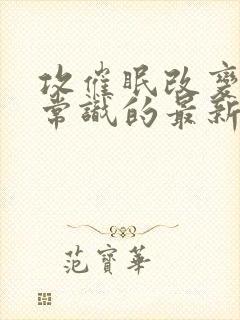 攻催眠改變
常識的最新
范寶華